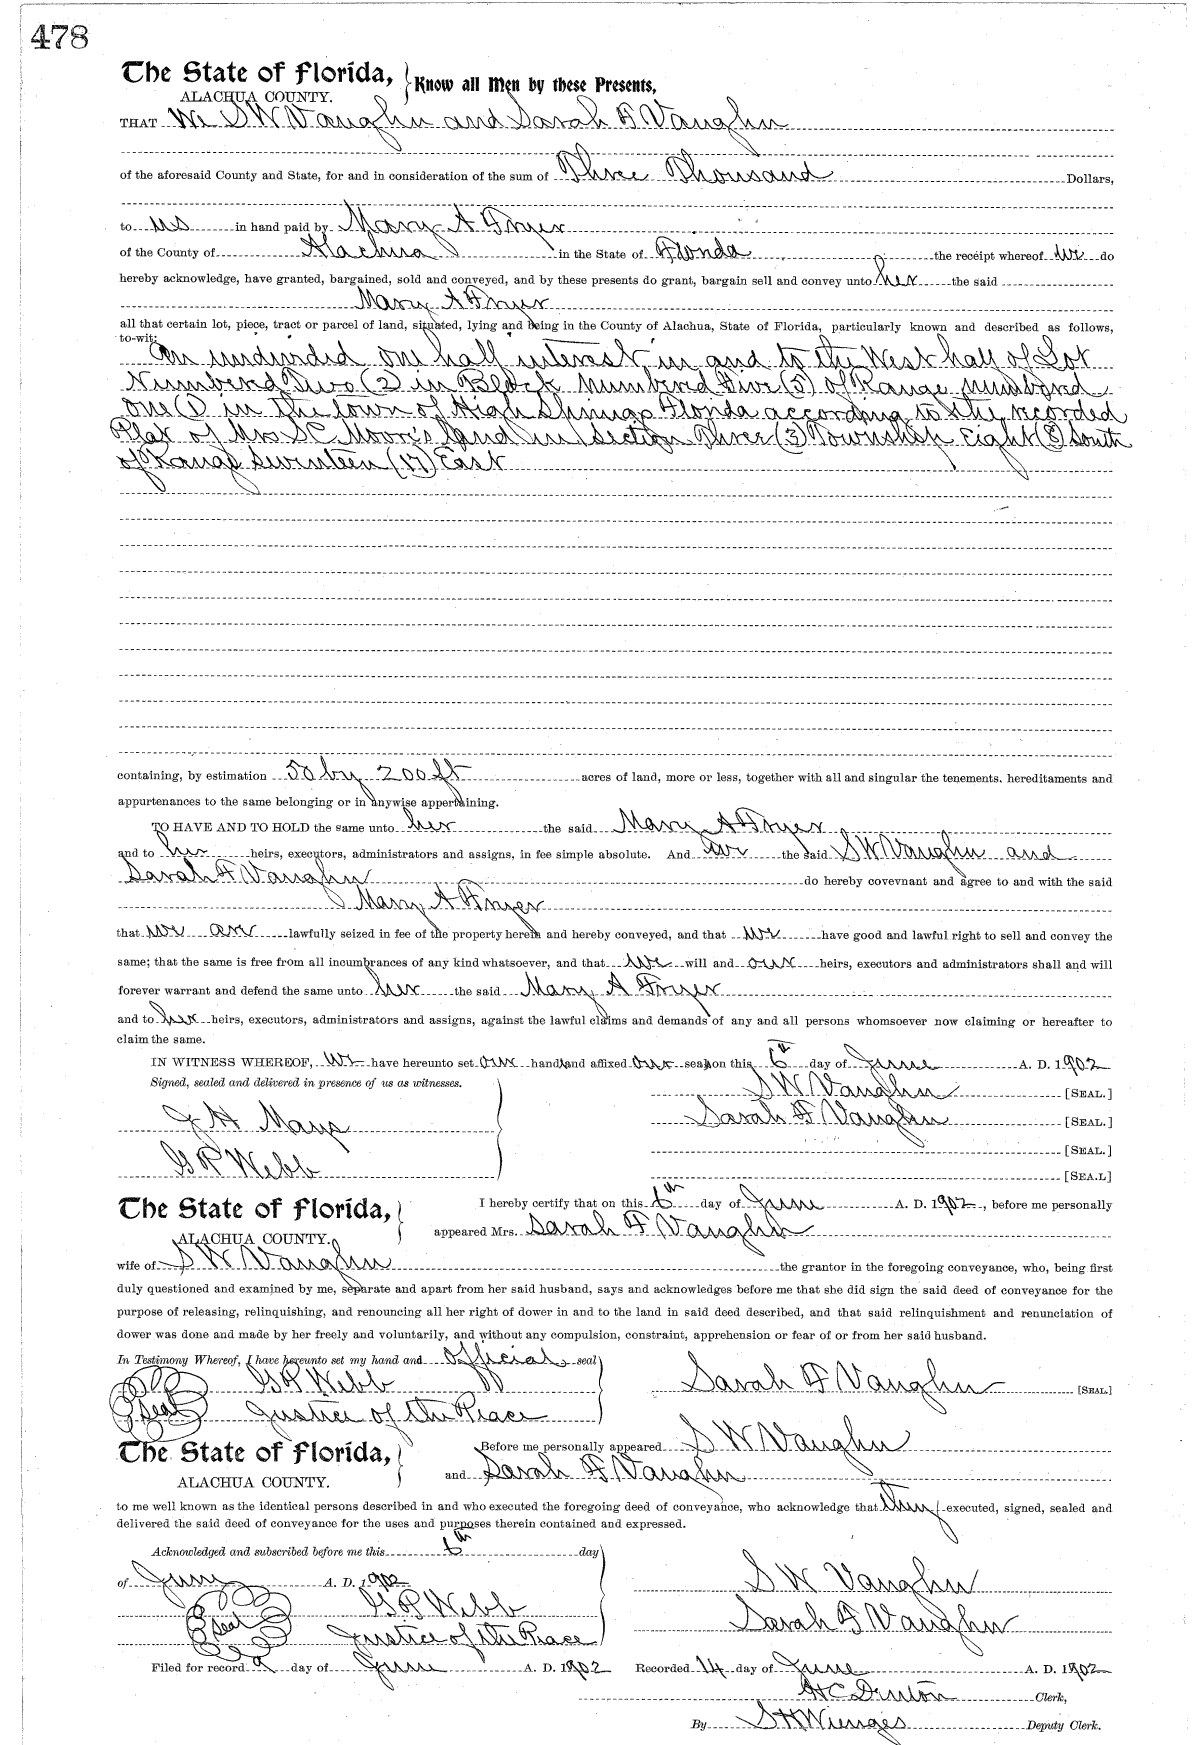 478
The State of Florida, Know all Men by these Presents,
ALACHUA COUNTY.
THAT We S W Vaughn and Sarah F Vaughn
of the aforesaid County and State, for and in consideration of the sum of Three Thousand Dollars,
to us in hand paid by Mary A Fryer
of the County of Alachua in the State of Florida the receipt whereof we do
hereby acknowledge, have granted, bargained, sold and conveyed, and by these presents do grant, bargain sell and convey unto her the said
Mary A Fryer
all that certain lot, piece, tract or parcel of land, situated, lying and being in the County of Alachua, State of Florida, particularly known and described as follows,
to-wit:
An undivided one half interest in and to the West half of Lot
Numbered Two (2) in Block Numbered Five (5) of Range numbered
One (1) in the town of High Springs Florida according to the recorded
Plat of Mrs S C Moore's land in Section Three (3) Township Eight (8) South
of Range Seventeen (17) East
containing, by estimation 50 by 200 ft acres of land, more or less, together with all and singular the tenements, hereditaments and
appurtenances to the same belonging or in anywise appertaining.
TO HAVE AND TO HOLD the same unto her the said Mary A Fryer
and to her heirs, executors, administrators and assigns, in fee simple absolute. And we the said S W Vaughn and
Sarah F Vaughn do hereby covevnant and agree to and with the said
Mary A Fryer
that we are lawfully seized in fee of the property herein and hereby conveyed, and that we have good and lawful right to sell and convey the
same; that the same is free from all incumbrances of any kind whatsoever, and that we will and our heirs, executors and administrators shall and will
forever warrant and defend the same unto her the said Mary A Fryer
and to her heirs, executors, administrators and assigns, against the lawful claims and demands of any and all persons whomsoever now claiming or hereafter to
claim the same.
IN WITNESS WHEREOF, we have hereunto set our hand and affixed our seal on this 6th day of June A. D. 1902
Signed, sealed and delivered in presence of us as witnesses.
S W Vaughn [SEAL.]
J H Mays
Sarah F Vaughn [SEAL.]
[SEAL.]
G P Webb
[SEA.L]
The State of Florida, I hereby certify that on this 6th day of June A. D. 1902, before me personally
ALACHUA COUNTY. appeared Mrs. Sarah F Vaughn
wife of S W Vaughn the grantor in the foregoing conveyance, who, being first
duly questioned and examined by me, separate and apart from her said husband, says and acknowledges before me that she did sign the said deed of conveyance for the
purpose of releasing, relinquishing, and renouncing all her right of dower in and to the land in said deed described, and that said relinquishment and renunciation of
dower was done and made by her freely and voluntarily, and without any compulsion, constraint, apprehension or fear of or from her said husband.
In Testimony Whereof, I have hereunto set my hand and official seal
G P Webb Sarah F Vaughn [SEAL.]
Seal Justice of the Peace
The State of Florida, Before me personally appeared S W Vaughn
ALACHUA COUNTY. and Sarah F Vaughn
to me well known as the identical persons described in and who executed the foregoing deed of conveyance, who acknowledge that they executed, signed, sealed and
delivered the said deed of conveyance for the uses and purposes therein contained and expressed.
Acknowledged and subscribed before me this 6th day
of June A. D. 1902 S W Vaughn
G P Webb
Seal Sarah F Vaughn
Justice of the Peace
Filed for record 9 day of June A. D. 1902 Recorded 14 day of June A. D. 1902
H C Denton Clerk,
By S H Wienges Deputy Clerk.